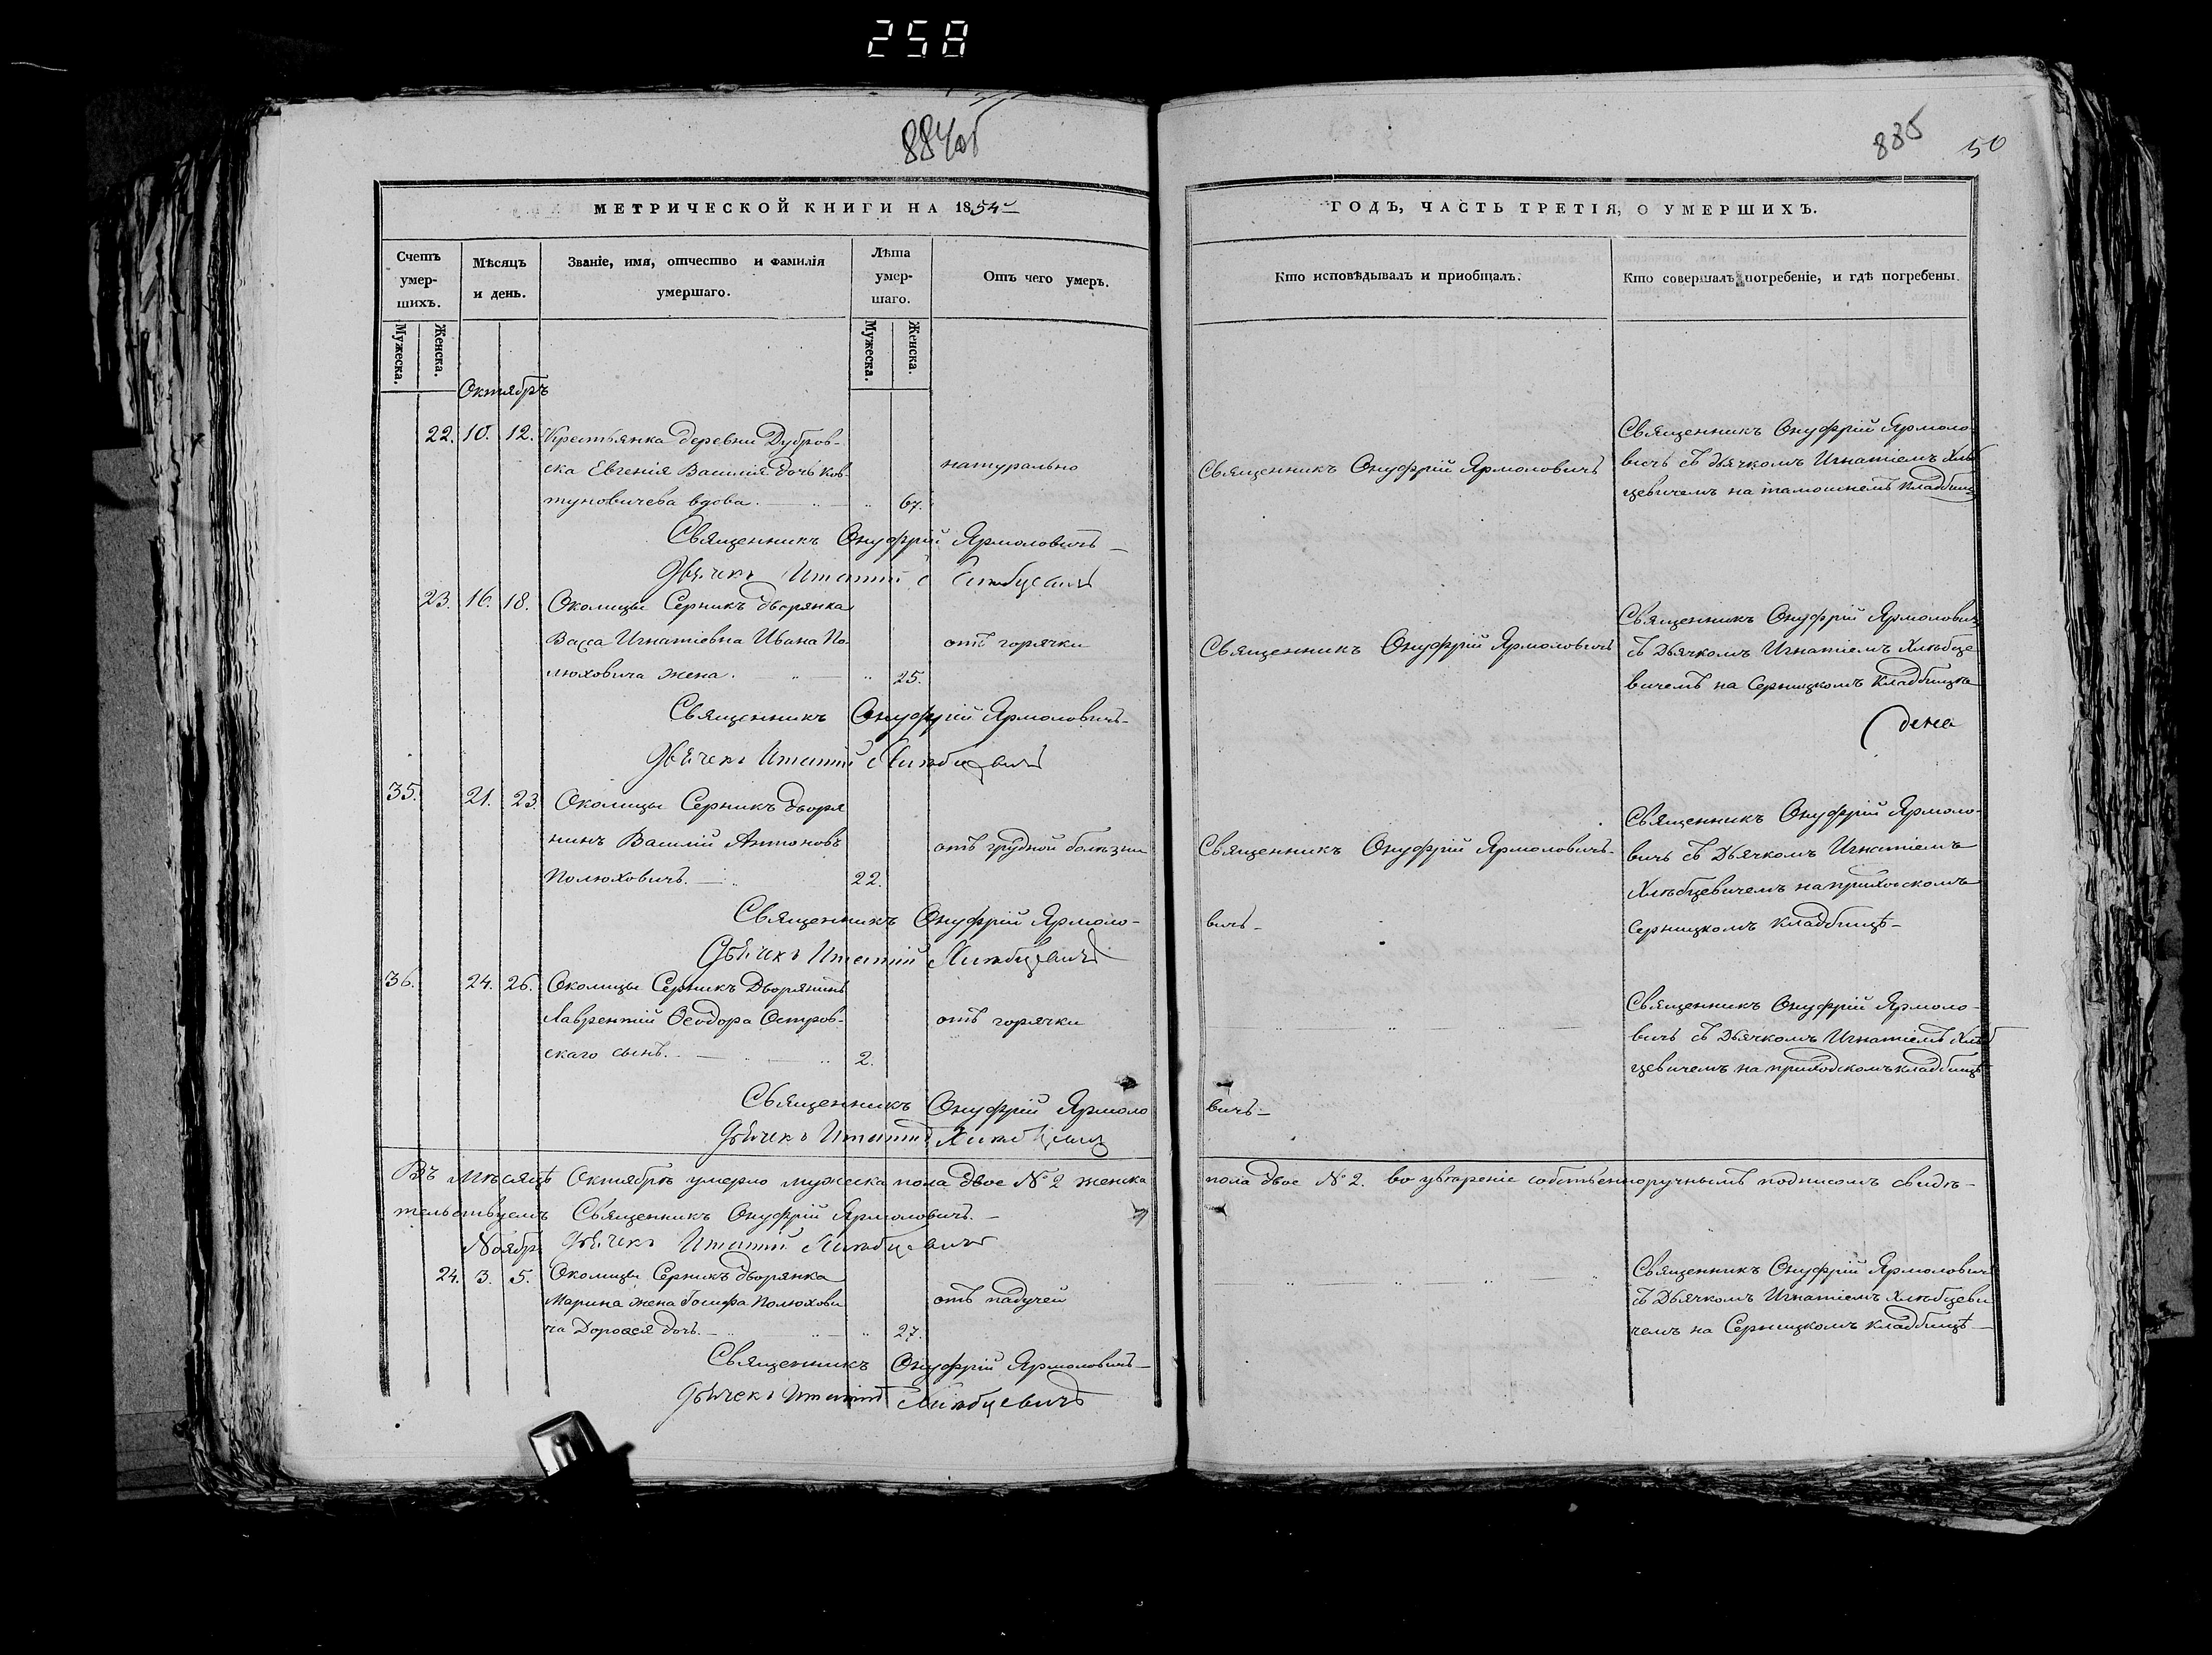 258
884об
885
50
МЕТРИЧЕСКОЙ КНИГИ НА 1854й
ГОДЪ, ЧАСТЬ ТРЕТІЯ, О УМЕРШИХЪ.
Счетъ умер-шихъ.
Мѣсяцъ и день.
Званіе, имя, отчество и фамилія умершаго.
Лѣта умер-шаго.
Отъ чего умеръ.
Кто исповѣдывалъ и пріобщалъ.
Кто совершалъ погребеніе, и гдѣ погребены.
Мужеска. Женска.
Мужеска. Женска.
Октябрь
22. 10. 12. Крестьянка деревни Дубров-
ска Евгенія Василія дочь Ков-
туновичева вдова. 67.
натурально
Священникъ Онуфрій Ярмоловичъ
Священникъ Онуфрій Ярмоло-
вичъ съ дьячкомъ Игнатіемъ Хлѣб
цевичемъ на тамошнемъ кладбищѣ
Священникъ Онуфрій Ярмоловичъ
Дьячекъ Игнатій Хлѣбцевичъ
23. 16. 18. Околицы Серникъ дворянка
Васса Игнатіевна Ивана По-
люховича жена. 25.
отъ горячки
Священникъ Онуфрій Ярмоловичъ
Священникъ Онуфрій Ярмоловичъ
съ Дьячкомъ Игнатіемъ Хлѣбце
вичемъ на Серницкомъ кладбищѣ
Священникъ Онуфрій Ярмоловичъ
Дьячекъ Игнатій Хлѣбцевичъ
35. 21. 23. Околицы Серникъ дворя
нинъ Василій Антоновъ
Полюховичъ. 22.
отъ грудной болѣзни
Священникъ Онуфрій Ярмоловичъ
Священникъ Онуфрій Ярмоло-
вичъ съ Дьячкомъ Игнатіемъ
Хлѣбцевичемъ на приходскомъ
Серницкомъ кладбищѣ
Священникъ Онуфрій Ярмоло-
вичъ
Дьячекъ Игнатій Хлѣбцевичъ
36. 24. 26. Околицы Серникъ Дворянинъ
Лаврентій Ѳеодора Остров-
скаго сынъ. 2.
отъ горячки
Священникъ Онуфрій Ярмоло-
вичъ съ Дьячкомъ Игнатіемъ Хлѣб
цевичемъ на приходскомъ кладбищѣ
Священникъ Онуфрій Ярмоло
вичъ
Дьячекъ Игнатій Хлѣбцевичъ
Въ мѣсяцѣ Октябрѣ умерло мужеска пола двое №2 женска пола двое №2. во увѣреніе собственноручнымъ подписомъ свидѣ-
тельствуемъ Священникъ Онуфрій Ярмоловичъ.
Дьячекъ Игнатій Хлѣбцевичъ
Ноябрь
24. 3. 5. Околицы Серникъ дворянка
Марина жена Іосифа Полюхови
ча Дороѳея дочь. 27.
отъ падучей
Священникъ Онуфрій Ярмоловичъ
съ Дьячкомъ Игнатіемъ Хлѣбцеви
чемъ на Серницкомъ кладбищѣ
Священникъ Онуфрій Ярмоловичъ
Дьячекъ Игнатій Хлѣбцевичъ